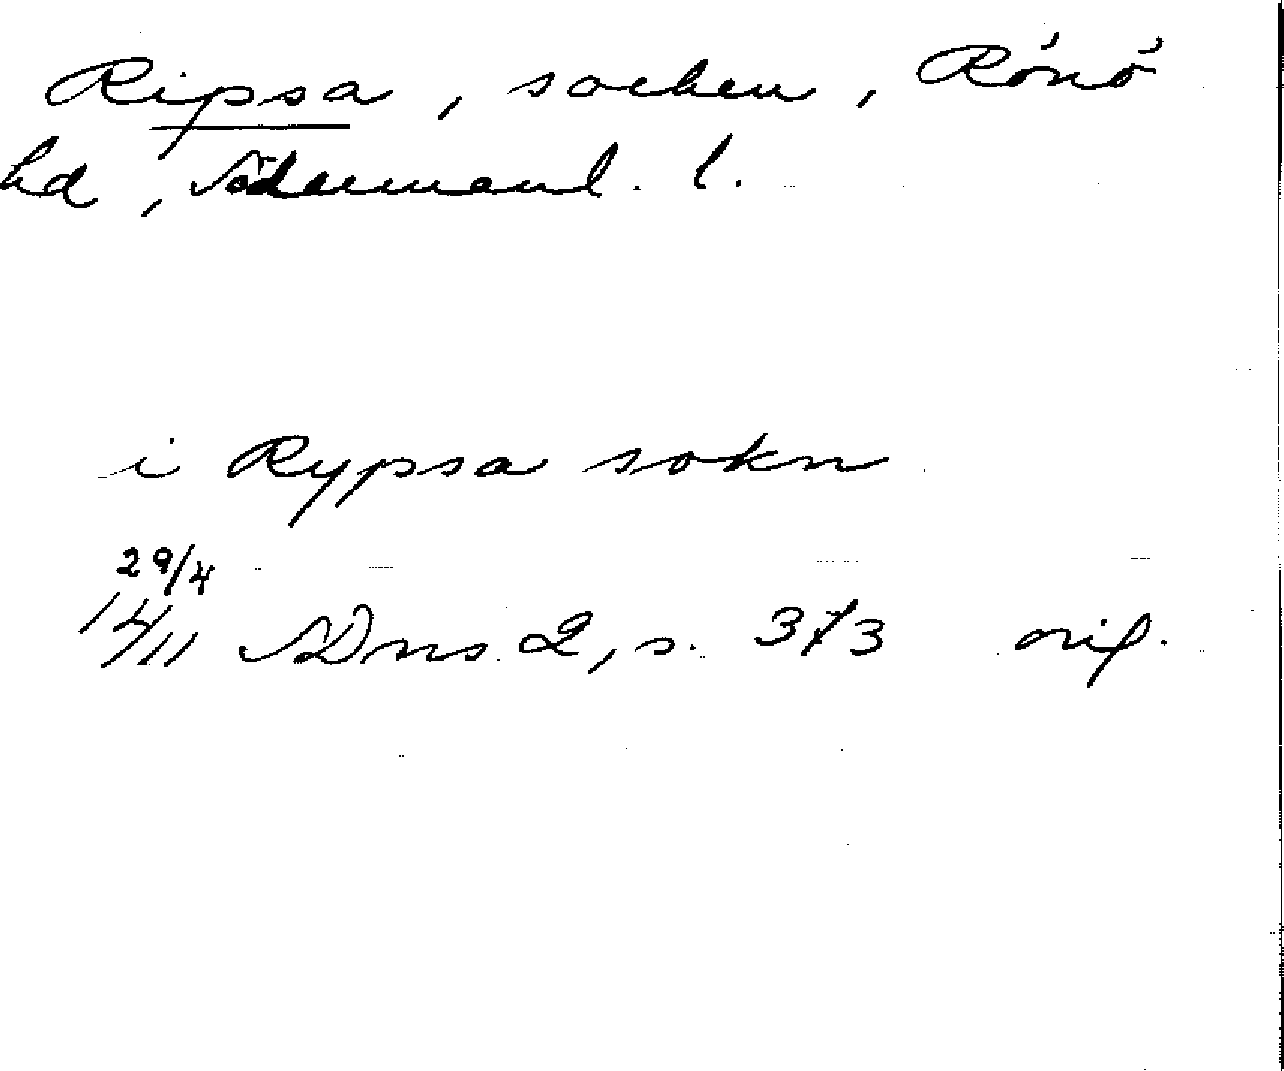 Ripsa, socken, Rönö
hd, Södermanl. l.
i Rypsa sokn
29/4
14/11 SDns 2, s. 373 orig.